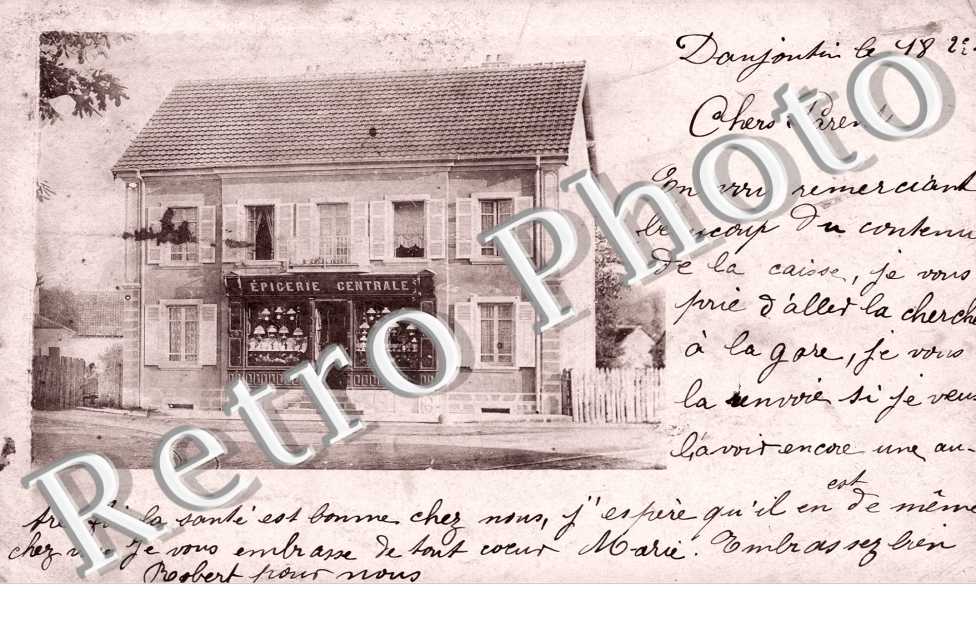 Danjoutin le 18
Chers Parents
En vous remerciant
beaucoup du contenu
de la caisse, je vous
prie d'aller la cherche
à la gare, je vous
la renvoie si je veux
l'avoir encore une au-
tre fois la santé est bonne chez nous, j'espère qu'il en est de même
chez vous Je vous embrasse de tout coeur Marie. Embrassez bien
Robert pour nous
ÉPICERIE CENTRALE
Retro Photo